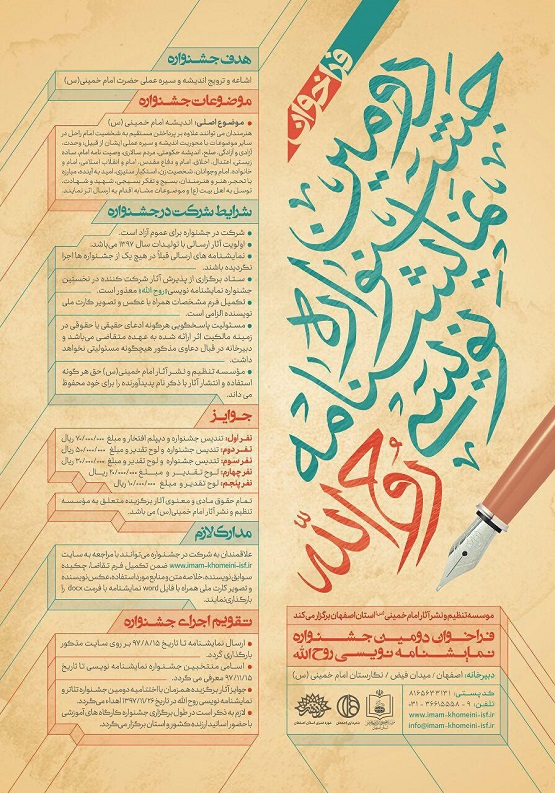 فراخوان
دومین
جشنواره
نمایشنامه
نویسی
روح الله
هدف جشنواره
اشاعه و ترویج اندیشه و سیره عملی حضرت امام خمینی(س)
موضوعات جشنواره
● موضوع اصلی: اندیشه امام خمینی (س)
هنرمندان می توانند علاوه بر پرداختن مستقیم به شخصیت امام راحل در
سایر موضوعات با محوریت اندیشه و سیره عملی ایشان از قبیل، وحدت،
آزادی و آزادگی، صلح، اندیشه حکومتی، مردم سالاری، وصیت نامه امام، ساده
زیستی، اعتدال، اخلاق، امام و دفاع مقدس، امام و انقلاب اسلامی، امام و
خانواده، امام وجوانان، شخصیت زن، استکبار ستیزی، امید به آینده، مبارزه
با تحجر، هنر و هنرمندان، بسیج و تفکر بسیجی، شهید و شهادت،
توسل به اهل بیت (ع) و موضوعات مشابه اقدام به ارسال اثر نمایند.
شرایط شرکت در جشنواره
● شرکت در جشنواره برای عموم آزاد است.
● اولویت آثار ارسالی با تولیدات سال ۱۳۹۷ می‌باشد.
● نمایشنامه های ارسالی قبلاً در هیچ یک از جشنواره ها اجرا
نگردیده باشند.
● ستاد برگزاری از پذیرش آثار شرکت کننده در نخستین
جشنواره نمایشنامه نویسی «روح الله» معذور است.
● تکمیل فرم مشخصات همراه با عکس و تصویر کارت ملی
نویسنده الزامی است.
● مسئولیت پاسخگویی هرگونه ادعای حقیقی یا حقوقی در
زمینه مالکیت اثر ارائه شده به عهده متقاضی می‌باشد و
دبیرخانه در قبال دعاوی مذکور هیچگونه مسئولیتی نخواهد
داشت.
● مؤسسه تنظیم و نشر آثار امام خمینی(س) حق هر گونه
استفاده و انتشار آثار با ذکر نام پدیدآورنده را برای خود محفوظ
می داند.
جوایز
نفر اول: تندیس جشنواره و دیپلم افتخار و مبلغ ۷۰/۰۰۰/۰۰۰ ریال
نفر دوم: تندیس جشنواره و لوح تقدیر و مبلغ ۵۰/۰۰۰/۰۰۰ ریال
نفر سوم: تندیس جشنواره و لوح تقدیر و مبلغ ۳۰/۰۰۰/۰۰۰ ریال
نفر چهارم: لوح تقدیر و مبلغ ۲۰/۰۰۰/۰۰۰ ریال
نفر پنجم: لوح تقدیر و مبلغ ۱۰/۰۰۰/۰۰۰ ریال
تمام حقوق مادی و معنوی آثار برگزیده متعلق به مؤسسه
تنظیم و نشر آثار امام خمینی(س) می باشد.
مدارک لازم
علاقمندان به شرکت در جشنواره می‌توانند با مراجعه به سایت
www.imam-khomeini-isf.ir ضمن تکمیل فرم تقاضا، چکیده
سوابق نویسنده، خلاصه متن و منابع مورد استفاده، عکس نویسنده
و تصویر کارت ملی همراه با فایل word نمایشنامه با فرمت docx را
بارگذاری نمایند.
تقویم اجرای جشنواره
● ارسال نمایشنامه تا تاریخ ۹۷/۸/۱۵ بر روی سایت مذکور
بارگذاری گردد.
● اسامی منتخبین جشنواره نمایشنامه نویسی تا تاریخ
۹۷/۱۱/۱۵ معرفی می گردد.
● جوایز آثار برگزیده همزمان با اختتامیه دومین جشنواره تئاتر و
نمایشنامه نویسی روح الله در تاریخ ۱۳۹۷/۱۱/۲۶ اهداء می‌گردد.
● لازم به ذکر است در طول برگزاری جشنواره کارگاه های آموزشی
با حضور اساتید ارزنده کشور و استان برگزار می‌گردد.
موسسه تنظیم و نشر آثار امام خمینی (س) استان اصفهان برگزار می کند
فراخوان دومین جشنواره
نمایشنامه نویسی روح الله
دبیرخانه: اصفهان / میدان فیض / نگارستان امام خمینی (س)
کد پستی: ۸۱۶۵۶۳۳۱۳۱
تلفن: ۹ - ۳۶۶۱۵۵۵۸ - ۰۳۱
www.imam-khomeini-isf.ir
info@imam-khomeini-isf.ir
حوزه هنری استان اصفهان